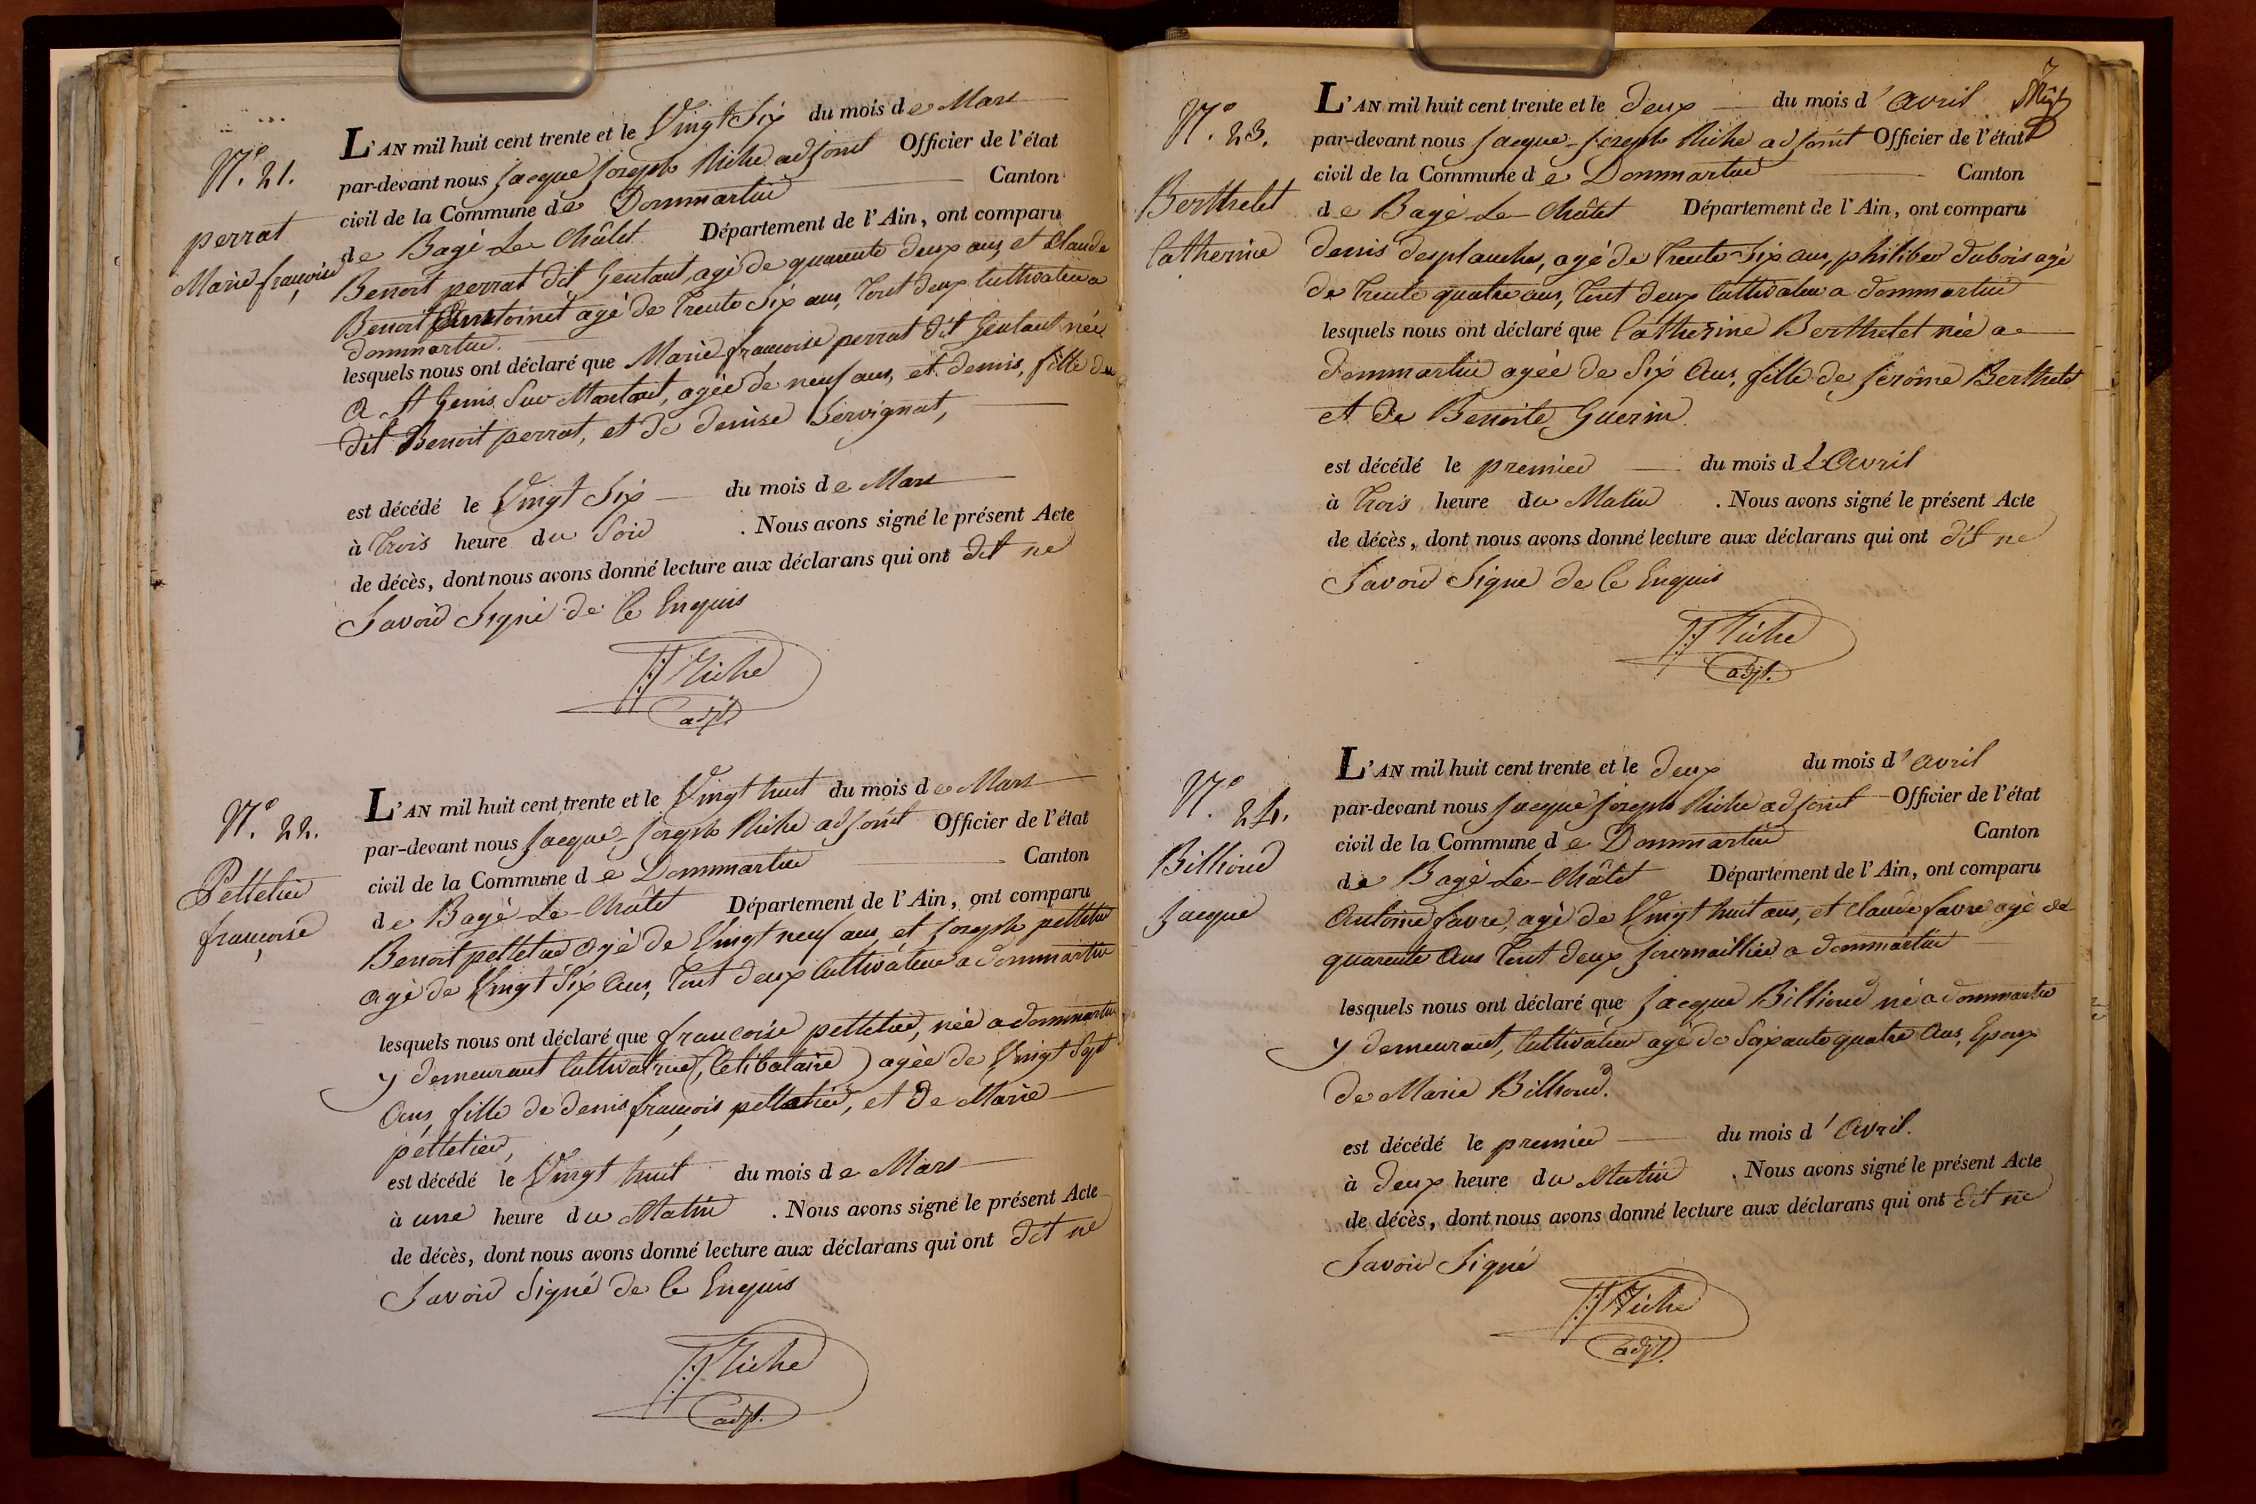 N.° 21.
perrat
Marie françoise
L'AN mil huit cent trente et le Vingt Six du mois de Mars
par-devant nous Jacque Joseph Riche adjoint Officier de l'état
civil de la Commune de Dommartin Canton
de Bagé Le Châtel Département de l'Ain, ont comparu
Benoit perrat dit Gentaut, agé de quarente deux ans, et Claude
Benoit agé de trente Six ans, tout deux Cultivateur a
dommartin.
lesquels nous ont déclaré que Marie françoise perrat dit Gentaut née
a St Genis Sur Manton, agée de neuf ans, et demis, fille du
dit Benoit perrat, et de denise Servignat,
est décédé le Vingt Six du mois de Mars
à trois heure du Soir . Nous avons signé le présent Acte
de décès, dont nous avons donné lecture aux déclarans qui ont dit ne
Savoir Signé de Ce Enquis
JJ Riche
adjt.
N.° 22.
Pelletier
françoise
L'AN mil huit cent trente et le Vingt huit du mois de Mars
par-devant nous Jacque Joseph Riche adjoint Officier de l'état
civil de la Commune de Dommartin Canton
de Bagé Le Châtel Département de l'Ain, ont comparu
Benoit pelletier agé de Vingt neuf ans et Joseph pelletier
agé de Vingt Six Ans, tout deux Cultivateur a dommartin
lesquels nous ont déclaré que françoise pelletier, née a dommartin
y demeurant Cultivatrice, (Célibataire) agée de Vingt Sept
Ans, fille de denis françois pelletier, et de Marie
pelletier,
est décédé le Vingt huit du mois de Mars
à une heure du Matin . Nous avons signé le présent Acte
de décès, dont nous avons donné lecture aux déclarans qui ont dit ne
Savoir Signé de Ce Enquis
JJ Riche
adjt.
N.° 23.
Berthelet
Catherine
L'AN mil huit cent trente et le deux du mois d'avril
par-devant nous Jacque Joseph Riche adjoint Officier de l'état
civil de la Commune de Dommartin Canton
de Bagé Le Châtel Département de l'Ain, ont comparu
denis desplanches, agé de trente Six ans, philiber dubois agé
de trente quatre ans, tout deux Cultivateur a dommartin
lesquels nous ont déclaré que Catherine Berthelet née a
dommartin agée de Six Ans, fille de Jerôme Berthelet
et de Benoite Guerin.
est décédé le premier du mois d'Avril
à trois heure du Matin . Nous avons signé le présent Acte
de décès, dont nous avons donné lecture aux déclarans qui ont dit ne
Savoir Signé de Ce Enquis
JJ Riche
adjt.
N.° 24.
Billioud
Jacque
L'AN mil huit cent trente et le deux du mois d'avril
par-devant nous Jacque Joseph Riche adjoint Officier de l'état
civil de la Commune de Dommartin Canton
de Bagé Le Châtel Département de l'Ain, ont comparu
Antoine favre, agé de Vingt huit ans, et Claude favre agé de
quarente Ans tout deux Journaillier a dommartin
lesquels nous ont déclaré que Jacque Billioud né a dommartin
y demeurant, Cultivateur agé de Soixante quatre Ans, Epoux
de Marie Billioud.
est décédé le premier du mois d'Avril.
à deux heure du Matin . Nous avons signé le présent Acte
de décès, dont nous avons donné lecture aux déclarans qui ont dit ne
Savoir Signé
JJ Riche
adjt.